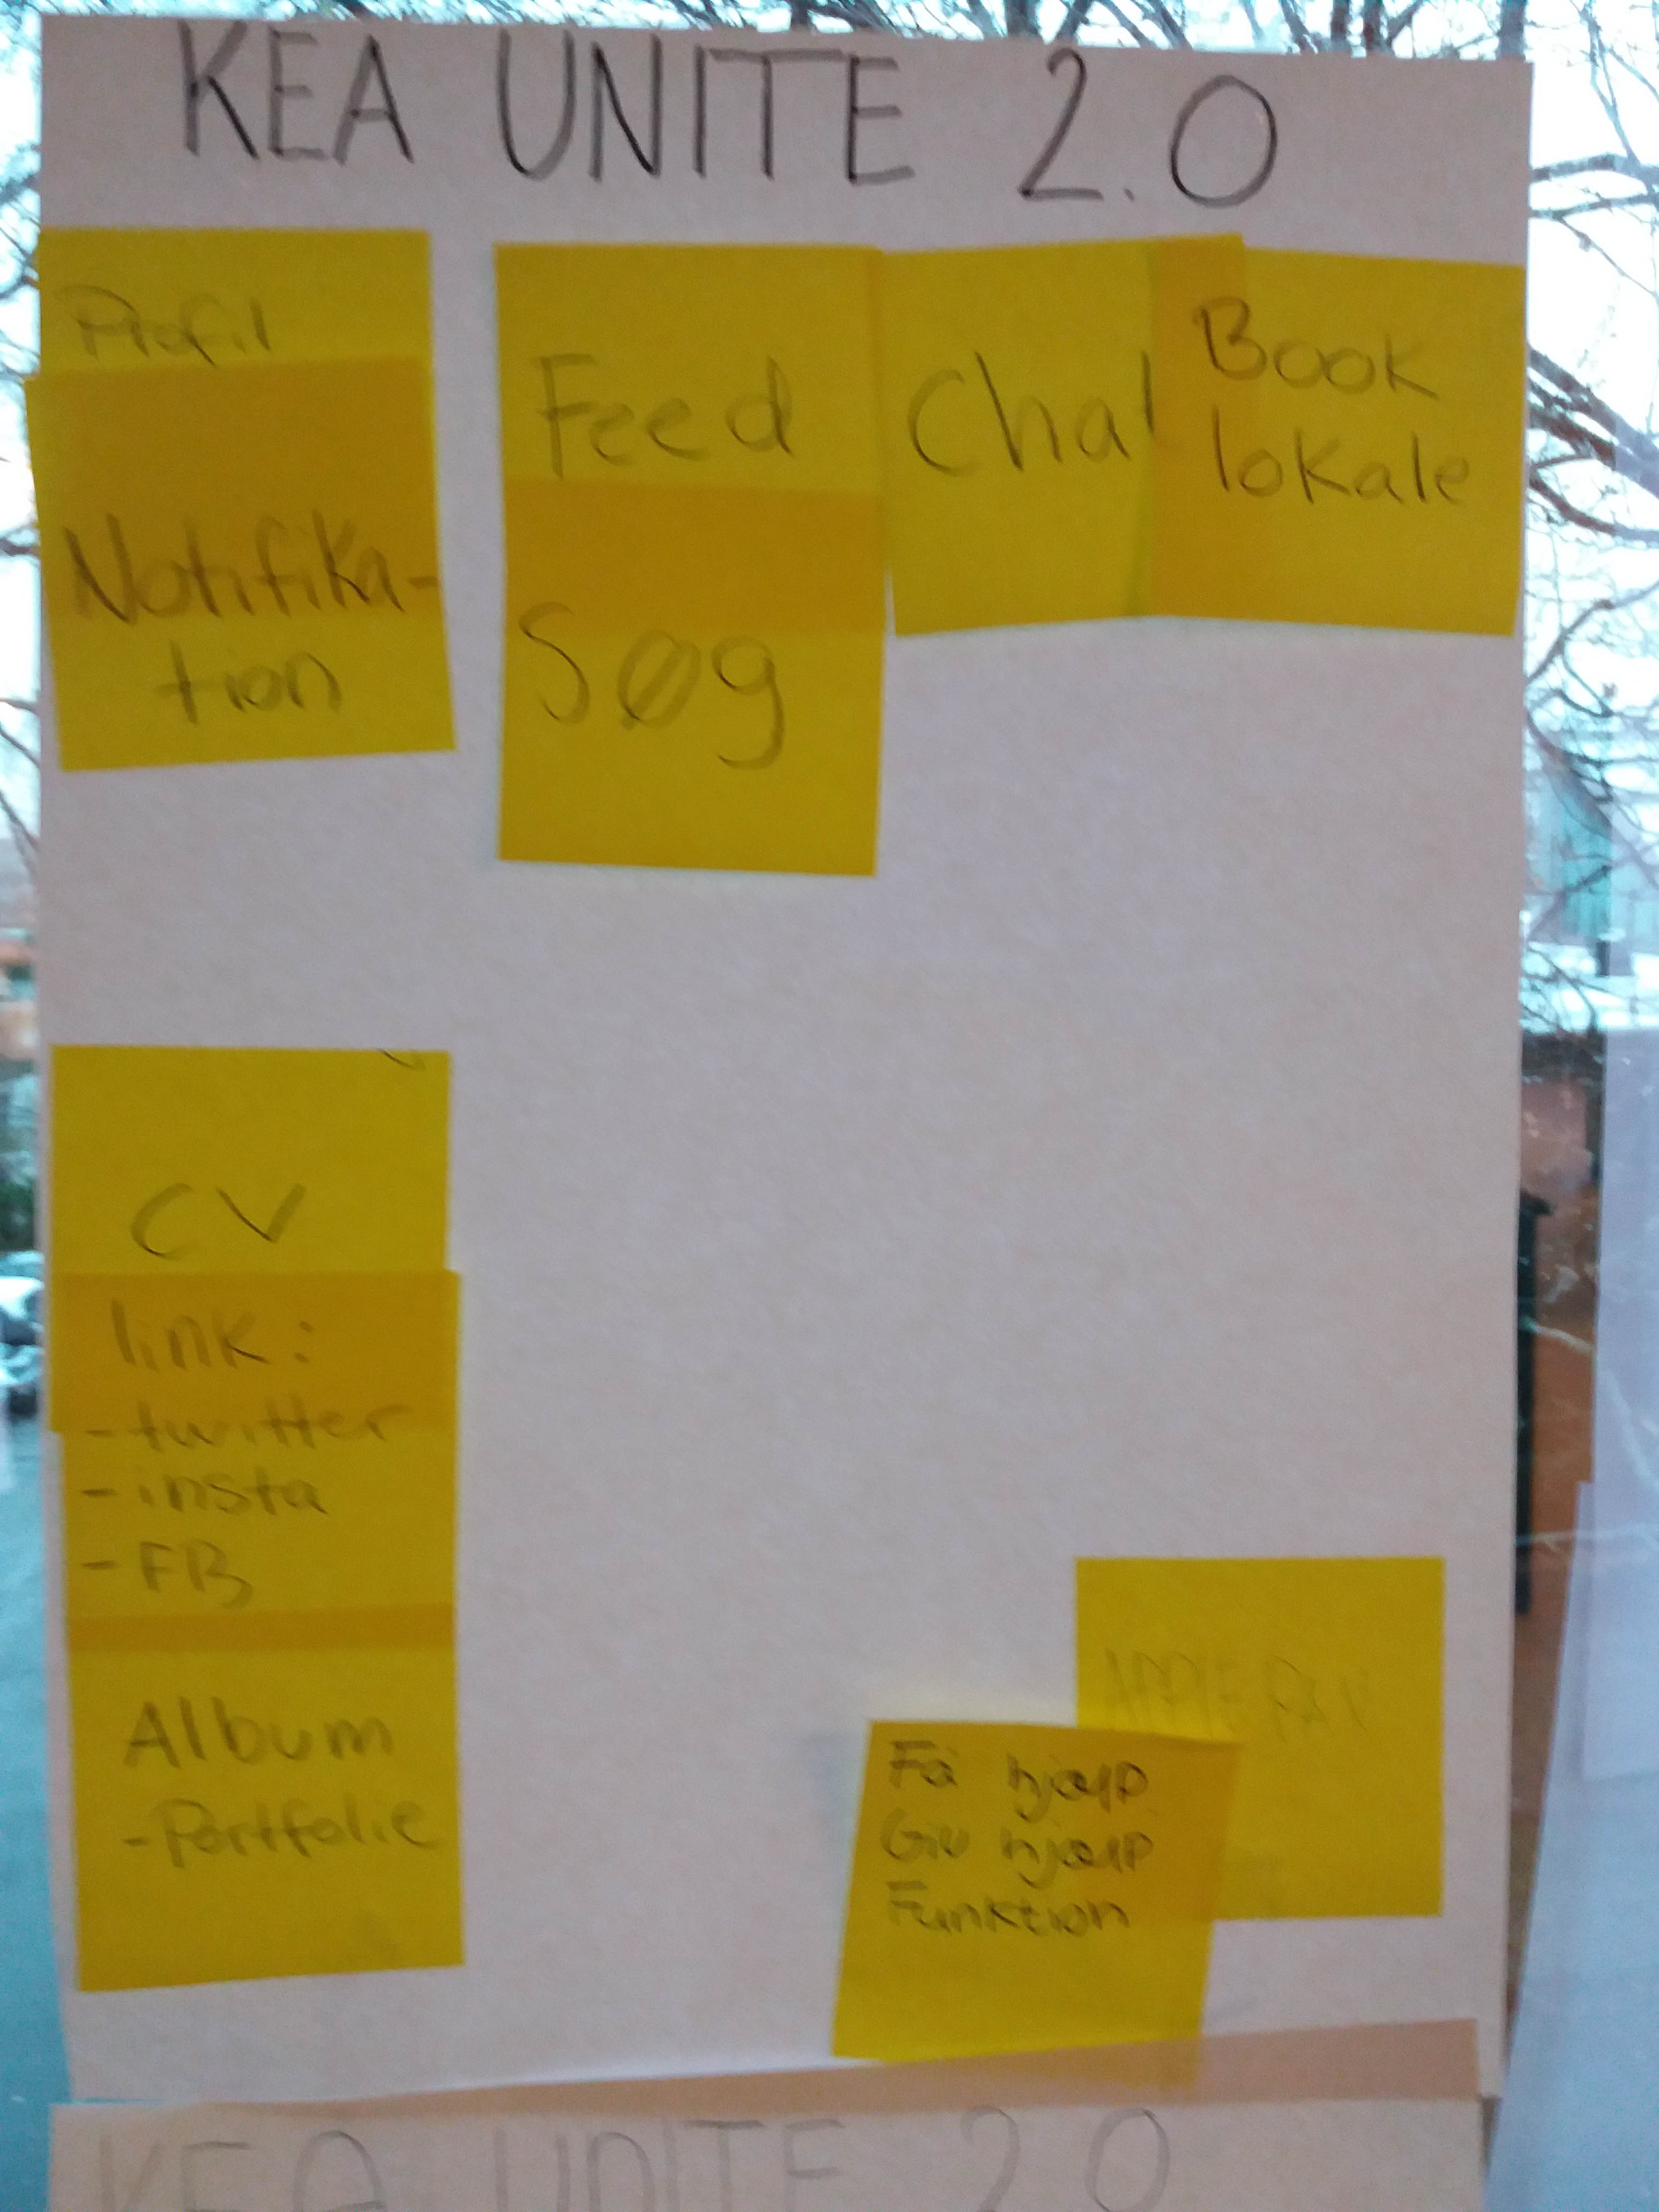 KEA UNITE 2.0
Profil
Notifika-
tion
Feed
Søg
Chat
Book
lokale
CV
link:
- twitter
- insta
- FB
Album
- Portfolie
Få hjælp
Giv hjælp
Funktion
KEA UNITE 2.0